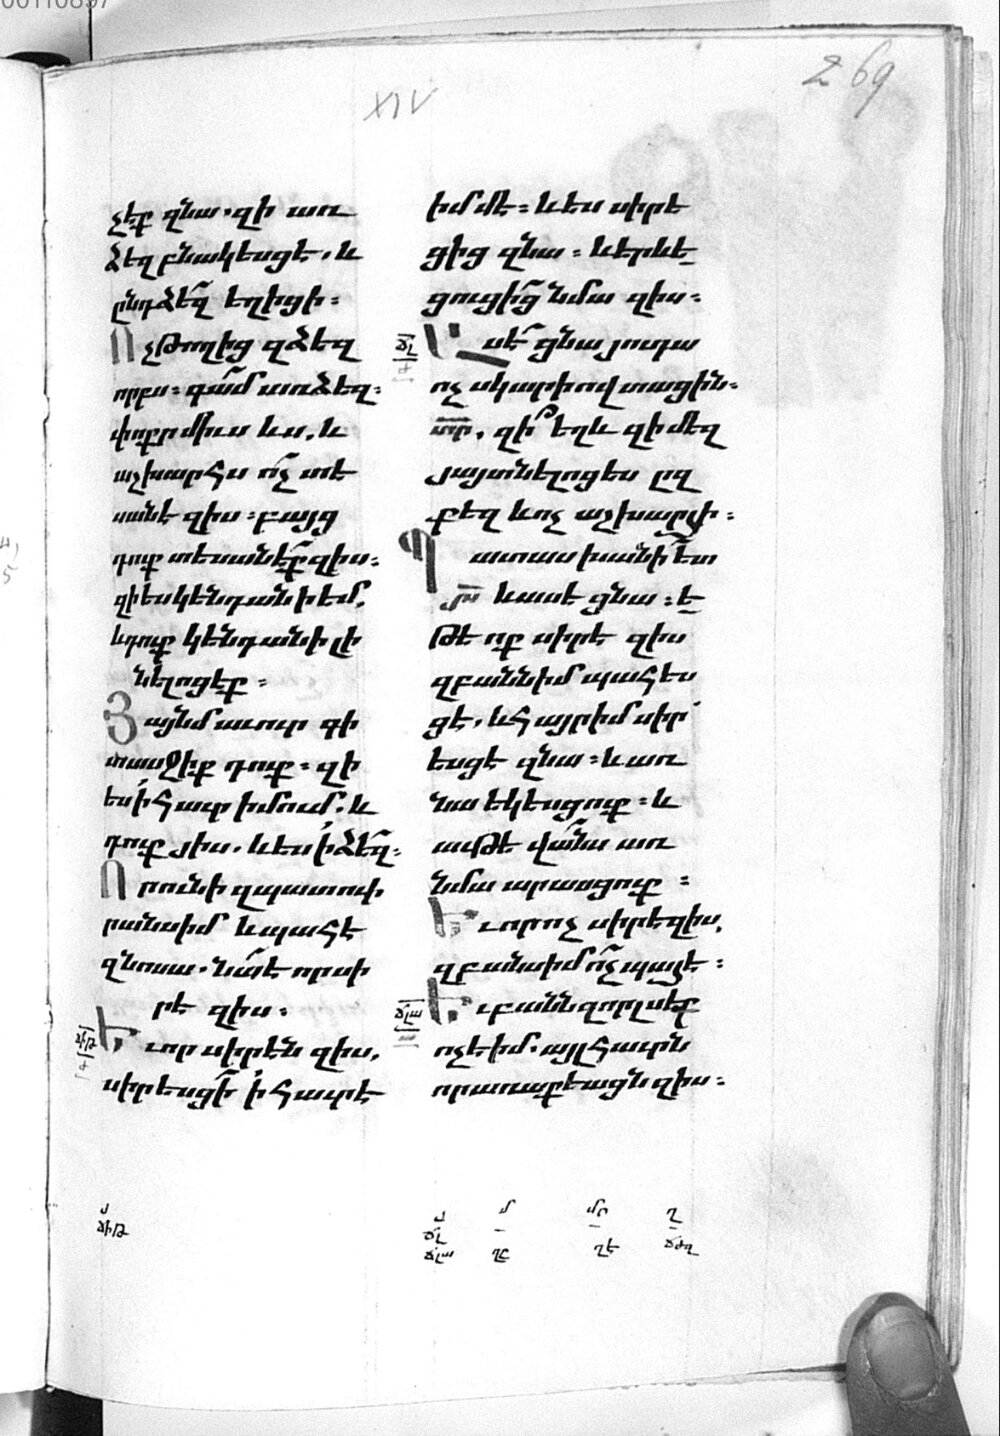 XIV
269
չէք զնա. զի առ
ձեզ բնակեսցէ. և
ընդ ձեզ եղիցի։
Ոչ թողից զձեզ
որբս։ գամ առ ձեզ։
փոքր միւս ևս. և
աշխարհս ոչ տե
սանէ զիս։ բայց
դուք տեսանէք զիս։
զի ես կենդանի եմ.
և դուք կենդանի լի
նելոցէք։
Յայնմ աւուր գի
տասջիք դուք։ զի
ես ի հայր իմում. և
դուք յիս. և ես ի ձեզ։
Որ ունի զպատուի
րանս իմ և պահէ
զնոսա. նա է որ սի
րէ զիս։
Եւ որ սիրէն զիս.
սիրեսցի ի հաւրէ
իմմէ։ և ես սիրե
ցից զնա։ և երևե
ցուցից նմա զիս։
Ասէ ցնա յուդա
ոչ սկարիովտացին։
տր. զի՞ եղև զի մեզ
յայտնելոց ես ըզ
քեզ և ոչ աշխարհի։
Պատասխանի ետ
յս և ասէ ցնա։ ե
թէ ոք սիրէ զիս
զբանն իմ պահես
ցէ. և հայր իմ սիր
եսցէ զնա։ և առ
նա եկեսցուք։ և
աւթևանս առ
նմա արասցուք։
Եւ որ ոչ սիրէ զիս.
զբանս իմ ոչ պահէ։
Եւ բանն զոր լսէք
ոչ է իմ. այլ հաւրն
որ առաքեացն զիս։